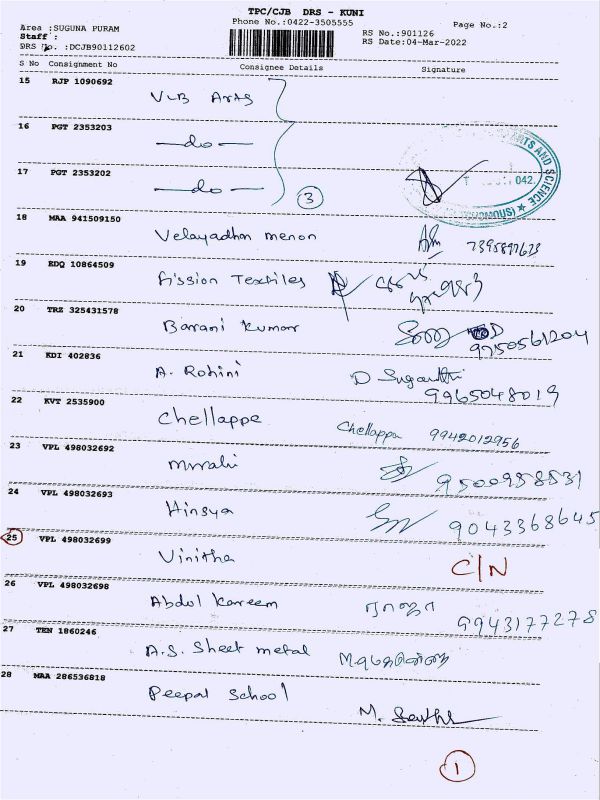 TPC/CJB DRS - KUNI
Phone No.:0422-3505555
Page No.:2
Area :SUGUNA PURAM
Staff :
DRS No. :DCJB90112602
RS No.:901126
RS Date:04-Mar-2022
S No Consignment No Consignee Details Signature
15 RJP 1090692 VLB Arts
16 PGT 2353203 —do—
17 PGT 2353202 —do—
TS AND SCIENCE
042.
3
18 MAA 941509150 Velayadhan menon
19 EDQ 10864509 Fission Textiles
20 TRZ 325431578 Barani Kumar 9750561204
21 KDI 402836 A. Rohini D Suganthi
9965048019
22 KVT 2535900 Chellappa Chellappa 9942012956
23 VPL 498032692 9500958531
24 VPL 498032693 Hinsya 9043368645
25 VPL 498032699 Vinitha C/N
26 VPL 498032698 Abdul Kareem ராஜா 9943177278
27 TEN 1860246 A.S. Sheet metal
28 MAA 286536818 Peepal School M.
1